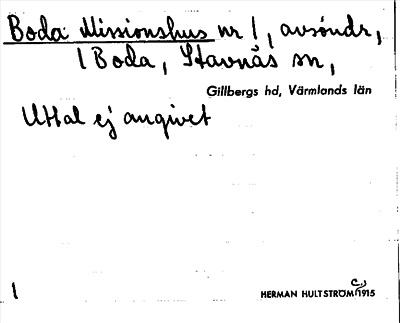 Boda Missionshus nr 1, avsöndr,
1 Boda, Stavnäs sn,
Gillbergs hd, Värmlands län
Uttal ej angivet
1
HERMAN HULTSTRÖM 1915